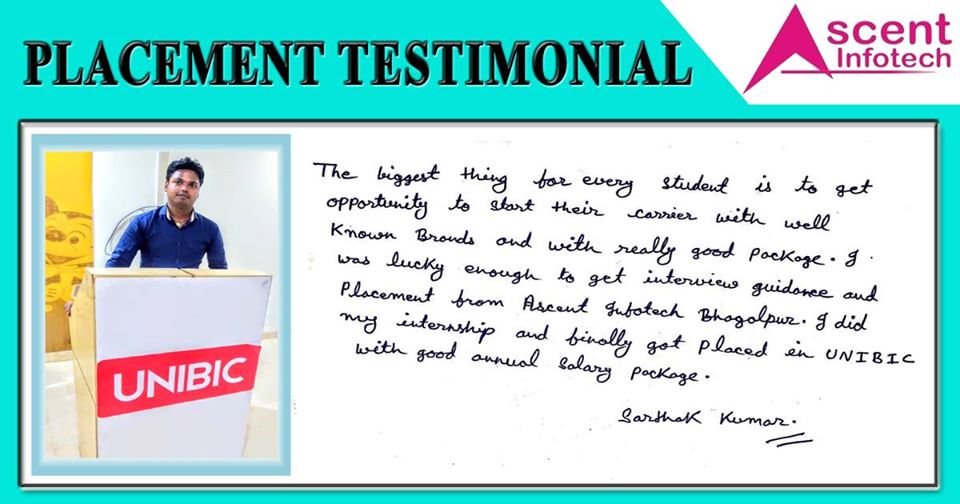 PLACEMENT TESTIMONIAL
Ascent
Infotech
The biggest thing for every student is to get
opportunity to start their carrier with well
Known Brands and with really good package. I
was lucky enough to get interview guidance and
Placement from Ascent Infotech Bhagalpur. I did
my internship and finally got placed in UNIBIC
with good annual salary package.
Sarthak Kumar.
UNIBIC